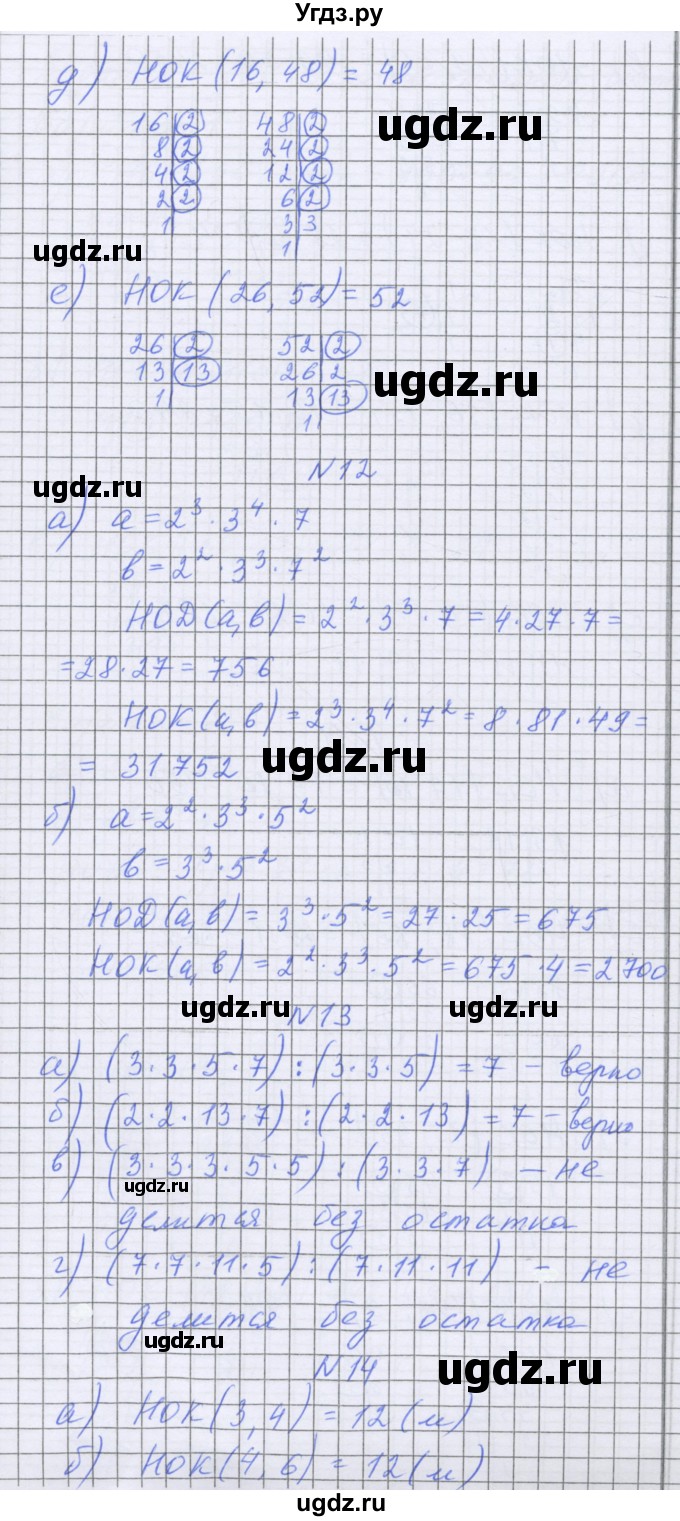 Угдз.ру
д) НОК (16, 48) = 48
16 | 2 48 | 2
8 | 2 24 | 2
4 | 2 12 | 2
2 | 2 6 | 2
1 | 3 | 3
1 |
ugdz.ru
ugdz.ru
е) НОК (26, 52) = 52
26 | 2 52 | 2
13 | 13 26 | 2
1 | 13 | 13
1 |
ugdz.ru
N12
ugdz.ru
а) a = 2³ · 3⁴ · 7
в = 2² · 3³ · 7²
НОД (а, в) = 2² · 3³ · 7 = 4 · 27 · 7 =
ugdz.ru
= 28 · 27 = 756
НОК (а, в) = 2³ · 3⁴ · 7² = 8 · 81 · 49 =
= 31752
ugdz.ru
б) а = 2² · 3³ · 5²
в = 3³ · 5²
ugdz.ru
НОД (а, в) = 3³ · 5² = 27 · 25 = 675
НОК (а, в) = 2² · 3³ · 5² = 675 · 4 = 2700
ugdz.ru
ugdz.ru
N13
а) (3 · 3 · 5 · 7) : (3 · 3 · 5) = 7 – верно
б) (2 · 2 · 13 · 7) : (2 · 2 · 13) = 7 – верно
в) (3 · 3 · 3 · 5 · 5) : (3 · 3 · 7) – не
ugdz.ru
делится без остатка
г) (7 · 7 · 11 · 5) : (7 · 11 · 11) – не
делится без остатка
ugdz.ru
N14
ugdz.ru
а) НОК (3, 4) = 12 (м)
б) НОК (4, 6) = 12 (м)
ugdz.ru